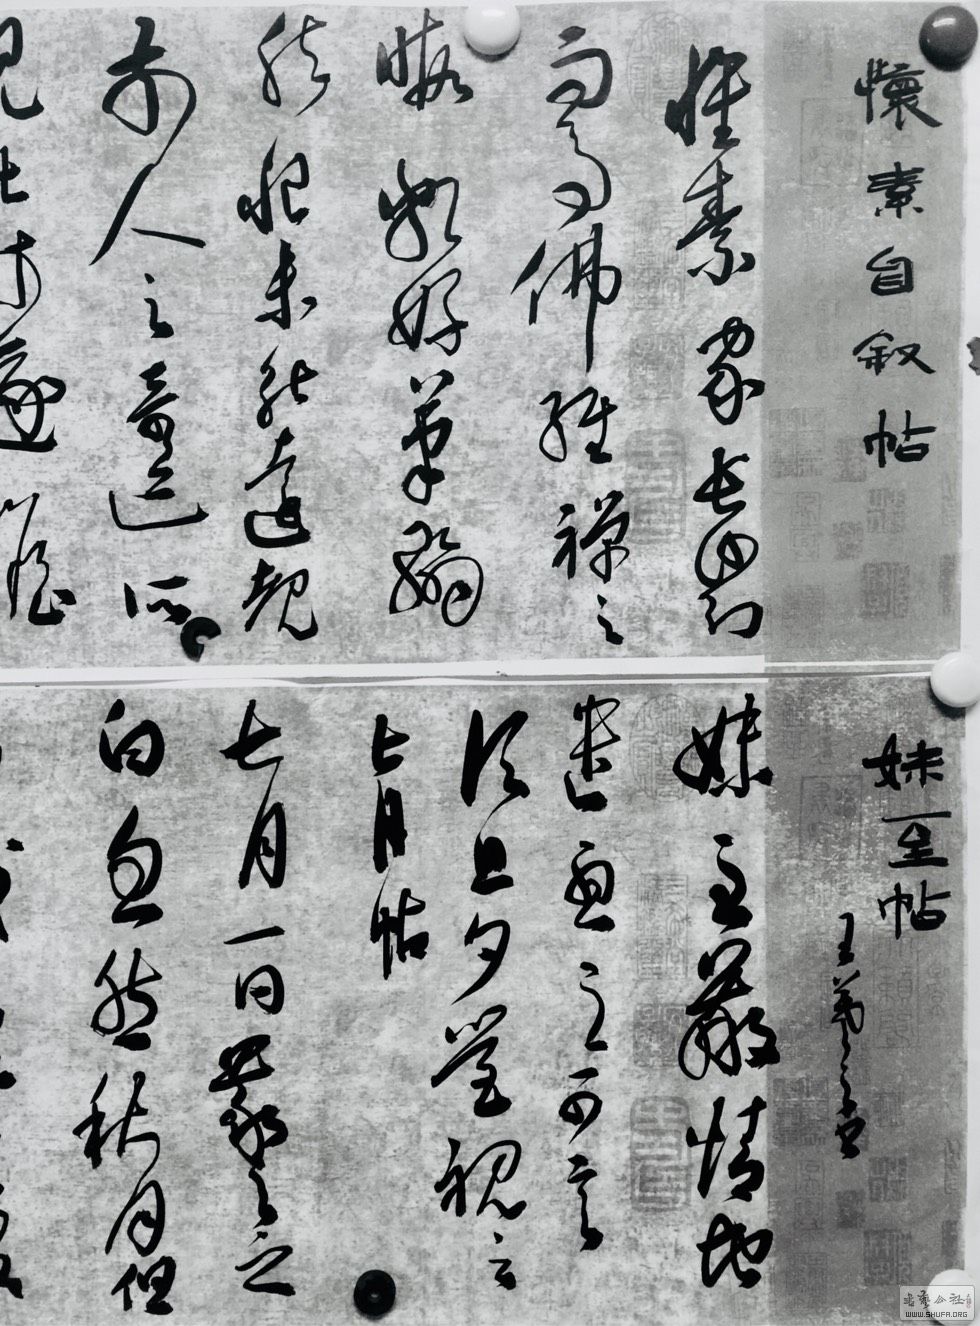 懷素自叙帖
懷素家長沙幼
而事佛經禪之
暇頗好筆翰
然恨未能遠覩
前人之奇迹所
遂擔
妹至帖
王羲之書
妹至羸情地
遣憂之可言
須旦夕營視之
七月帖
七月一日羲之
白忽然秋月但
WWW.SHUFA.ORG